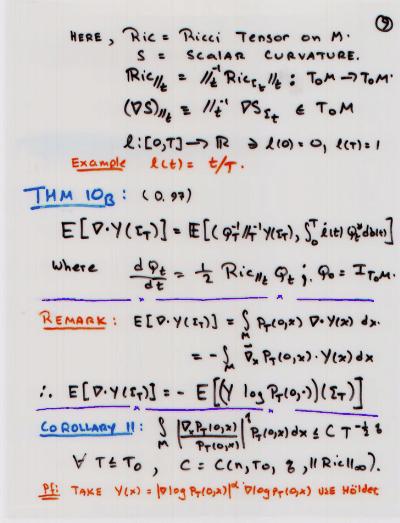 9
HERE, Ric = Ricci Tensor on M.
S = SCALAR CURVATURE.
Ric//t = //t⁻¹ RicΣt //t : T₀M → T₀M.
(∇S)//t = //t⁻¹ ∇SΣt ∈ T₀M
l : [0,T] → ℝ ∋ l(0) = 0, l(T) = 1
Example l(t) = t/T.
THM 10B : (D. 97)
E[∇·Y(ΣT)] = E[(QT⁻¹ //T⁻¹ Y(ΣT), ∫₀ᵀ l̇(t) Qt* db(t))]
where dQt/dt = ½ Ric//t Qt ; Q₀ = I T₀M.
REMARK : E[∇·Y(ΣT)] = ∫M PT(0,x) ∇·Y(x) dx.
= -∫M ∇⃗x PT(0,x)·Y(x) dx
∴ E[∇·Y(ΣT)] = - E[(Y log PT(0,·))(ΣT)]
COROLLARY 11 : ∫M |∇x PT(0,x) / PT(0,x)|^q PT(0,x) dx ≤ C T^(-½ q)
∀ T ≤ T₀ , C = C(n, T₀, q, ||Ric||∞).
Pf: TAKE Y(x) = |∇ log PT(0,x)|^α ∇ log PT(0,x) USE Hölder